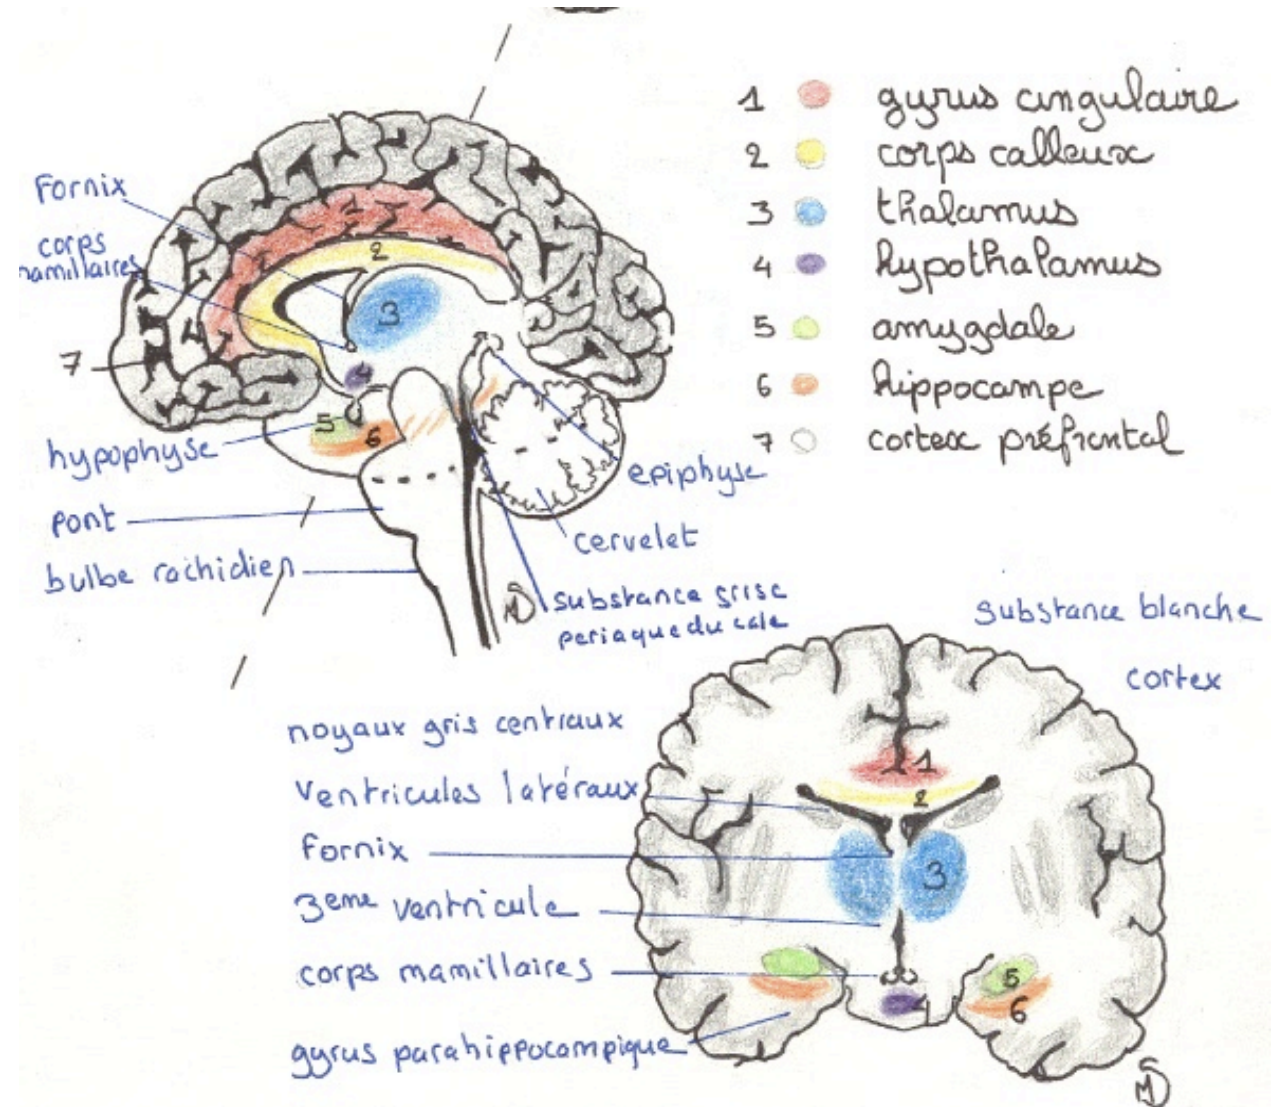 1 gyrus cingulaire
2 corps calleux
3 thalamus
4 hypothalamus
5 amygdale
6 hippocampe
7 cortex préfrontal
Fornix
corps
mamillaires
1
2
3
4
5
6
7
hypophyse
pont
bulbe rachidien
epiphyse
cervelet
substance grise
periaqueducale
MD
substance blanche
cortex
noyaux gris centraux
ventricules latéraux
fornix
3eme ventricule
corps mamillaires
gyrus parahippocampique
1
2
3
4
5
6
MD